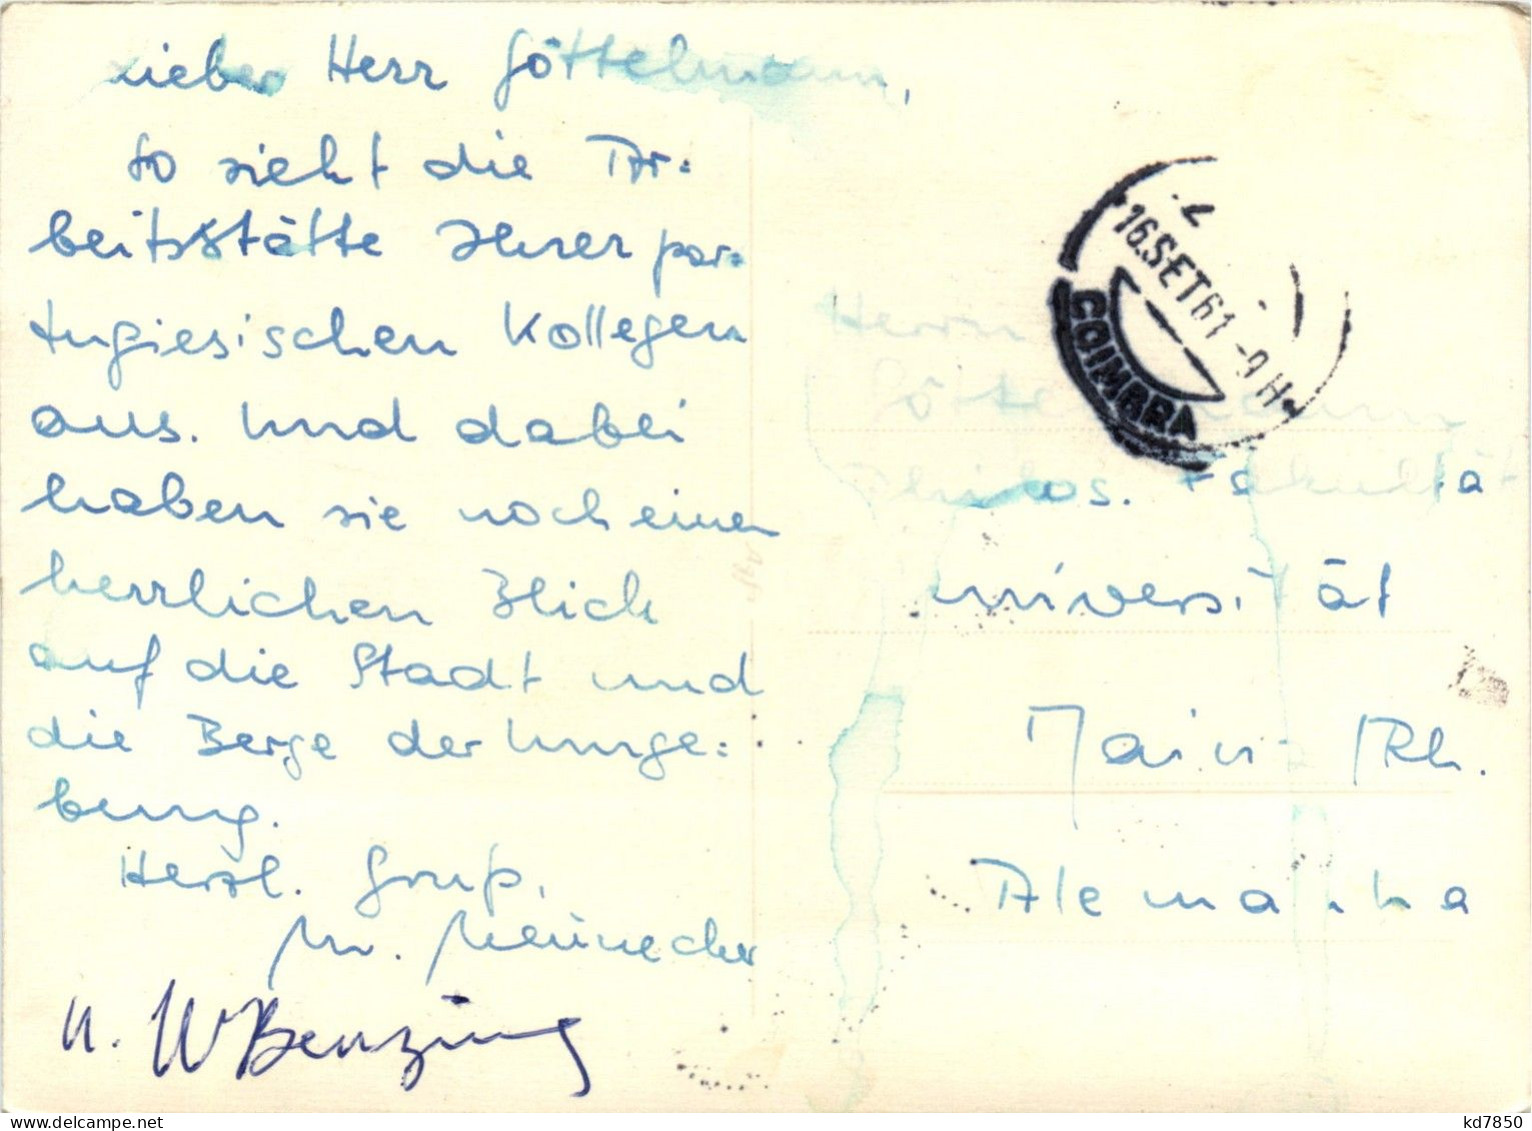 Lieber Herr Göttelmann,
so sieht die Ar=
beitsstätte Ihrer por=
tugiesischen Kollegen
aus. Und dabei
haben sie noch einen
herrlichen Blick
auf die Stadt und
die Berge der Umge=
bung.
Herzl. Grüße,
u. W Benzing
16.SET61-9H
COIMBRA
Herrn
Göttelmann
Philos. Fakultät
Universität
Mainz Rh.
Alemanha
kd7850